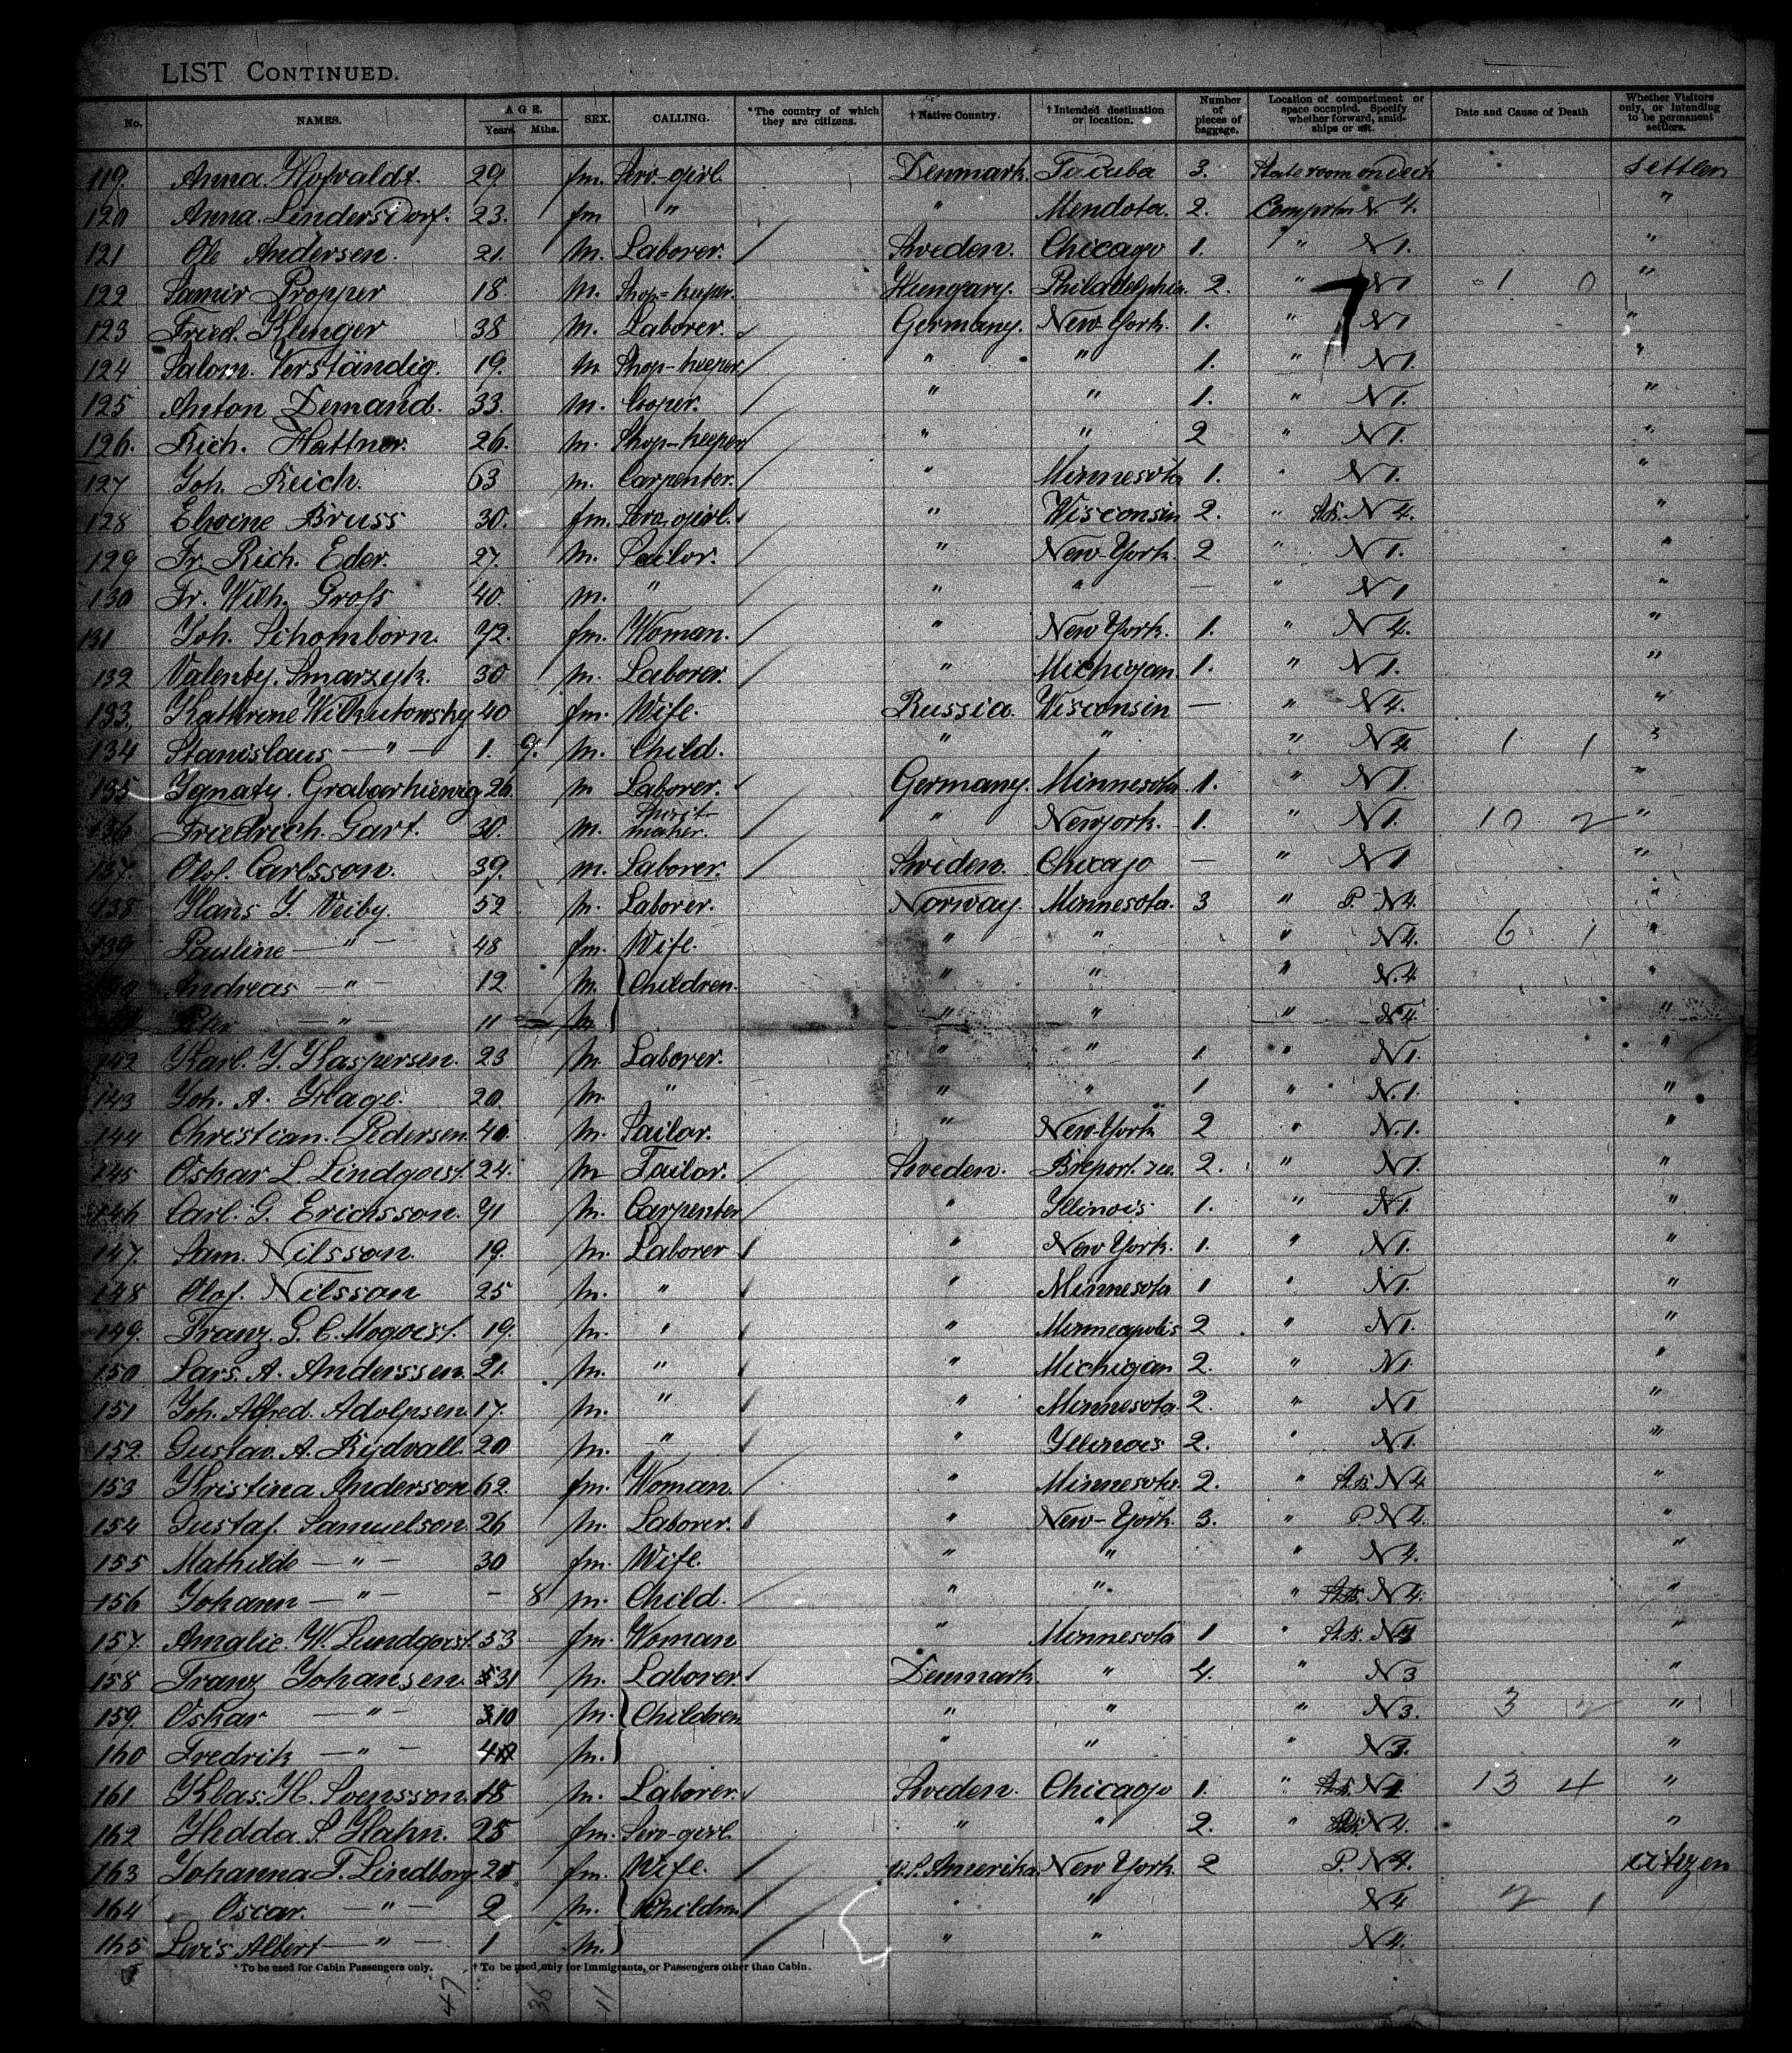 LIST CONTINUED.
No. NAMES. AGE. Years. Mths. SEX. CALLING. *The country of which they are citizens. † Native Country. † Intended destination or location. Number of pieces of baggage. Location of compartment or space occupied. Specify whether forward, amidships or aft. Date and Cause of Death Whether Visitors only, or intending to be permanent settlers.
119. Anna Hofvaldt. 29. fm. Serv-girl. Denmark. 3. State room on deck settlers
120 Anna. Lindersdorf. 23. fm " " Mendota. 2. Comprtm N 4. "
121 Ole Andersen. 21. m. Laborer. Sweden. Chicago 1. " N 1. "
122 Samir Propper 18. m. Shop-keeper. Hungary. Philadelphia. 2. " N 1 1 0 "
123 Fried. Klenger 38 m. Laborer. Germany. New-York. 1. " N 1 "
124 Salom. Verständig. 19. m Shop-keeper. " " 1. " N 1. "
125 Anton Demand. 33. m. Cooper. " " 1. " N 1. "
126. Rich. Hattner. 26. m. Shop-keeper " " 2 " N 1. "
127 Joh. Reich. 63 m. Carpenter. " Minnesota 1. " N 1. "
128 Elwine Bruss 30. fm. Serv-girl. " Wisconsin 2. " N 4. "
129 Fr. Rich. Eder. 27. m. Tailor. " New-York. 2 " N 1. "
130 Fr. Wilh. Groß 40. m. " " " — " N 1 "
131 Joh. Schomborn. 72. fm. Woman. " New York. 1. " N 4. "
132 Valenty. Smarzyk. 30 m. Laborer. " Michigan. 1. " N 1. "
133. Kathrine Wilkutowsky 40 fm. Wife. Russia. Wisconsin — " N 4. "
134 Stanislaus — " — 1. 9. m. Child. " " " N 4. 1 1 "
135 Ignaty. 26. m Laborer. Germany. Minnesota. 1. " N 1. "
136 Friedrich. Gart. 30. m. maker. " Newyork. 1. " N 1. 10 2 "
137. Olof. Carlsson. 39. m. Laborer. Sweden. Chicago — " N 1 "
138 Hans J. Veiby. 52 m. Laborer. Norway. Minnesota. 3 " P. N 4. "
139 Pauline — " — 48 fm. Wife. " " " N 4. 6 1 "
140 Andreas — " — 12 m. Children. " " " N. 4 "
141 Peter — " — 11 m " " " N 4. "
142 Karl. J. Kaspersen. 23 m. Laborer. " " 1. " N 1. "
143 Joh. A. 20. m. " " " 1 " N. 1. "
144 Christian. Pedersen. 40. m. Sailor. " New-York 2 " N. 1. "
145 Oskar L. Lindqvist. 24. m Tailor. Sweden. 2. " N 1. "
146 Carl. G. Ericsson. 41 m. Carpenter " Illinois 1. " N 1. "
147. Sam. Nilsson. 19. m. Laborer " New York. 1. " N 1. "
148 Olof. Nilsson 25 m. " " Minnesota 1 " N 1. "
149. Franz. G. C. 19. m. " " Minneapolis 2 " N 1. "
150 Lars. A. Anderssen. 21. m. " " Michigan 2. " N 1 "
151 Joh. Alfred. Adolpsen. 17. m. " " Minnesota. 2. " N 1 "
152. Gustav. A. Rydvall. 20 m. " " Illinois 2. " N 1. "
153 Kristina Anderson 62. fm. Woman. " Minnesota. 2. " N 4 "
154 Gustaf. Samuelson. 26 m. Laborer. " New-York. 3. " P. N 4. "
155 Mathilde — " — 30 fm. Wife. " " " N 4. "
156 Johann — " — - 8 m. Child. " " " N 4. "
157. Amalie. W. Lundqvist. 53 fm. Woman " Minnesota 1 " "
158 Franz Johansen. 31 m. Laborer. Denmark. " 4. " N 3 "
159. Oskar — " — 10 m. Children " " " N 3. 3 2 "
160 Fredrik — " — m. " " " N 3. "
161 Klas. H. Svensson. 18 m. Laborer. Sweden. Chicago 1. " N 1. 13 4 "
162 Hedda. S. Hahn. 25 fm. Serv-girl. " " 2. " N 4. "
163 Johanna T. Lindborg. fm. Wife. U.S. Amerika. New York. 2 P. N 4. citizen
164 Oscar. — " — 2 m. Children " " N 4 2 1
165 Levis Albert — " — 1 m. " " N 4.
*To be used for Cabin Passengers only. † To be used only for Immigrants, or Passengers other than Cabin.
47 36 11